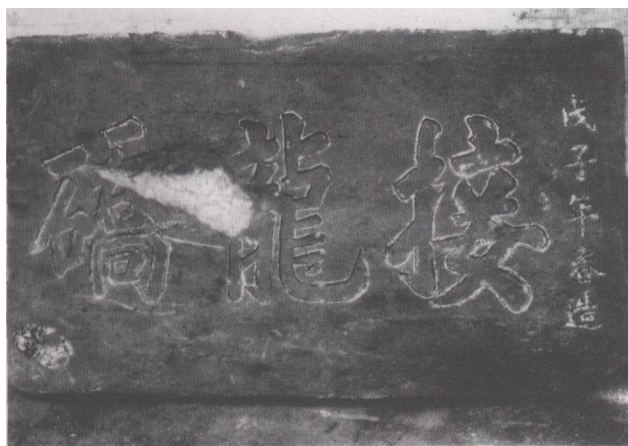 戊子年春造
接龍礄